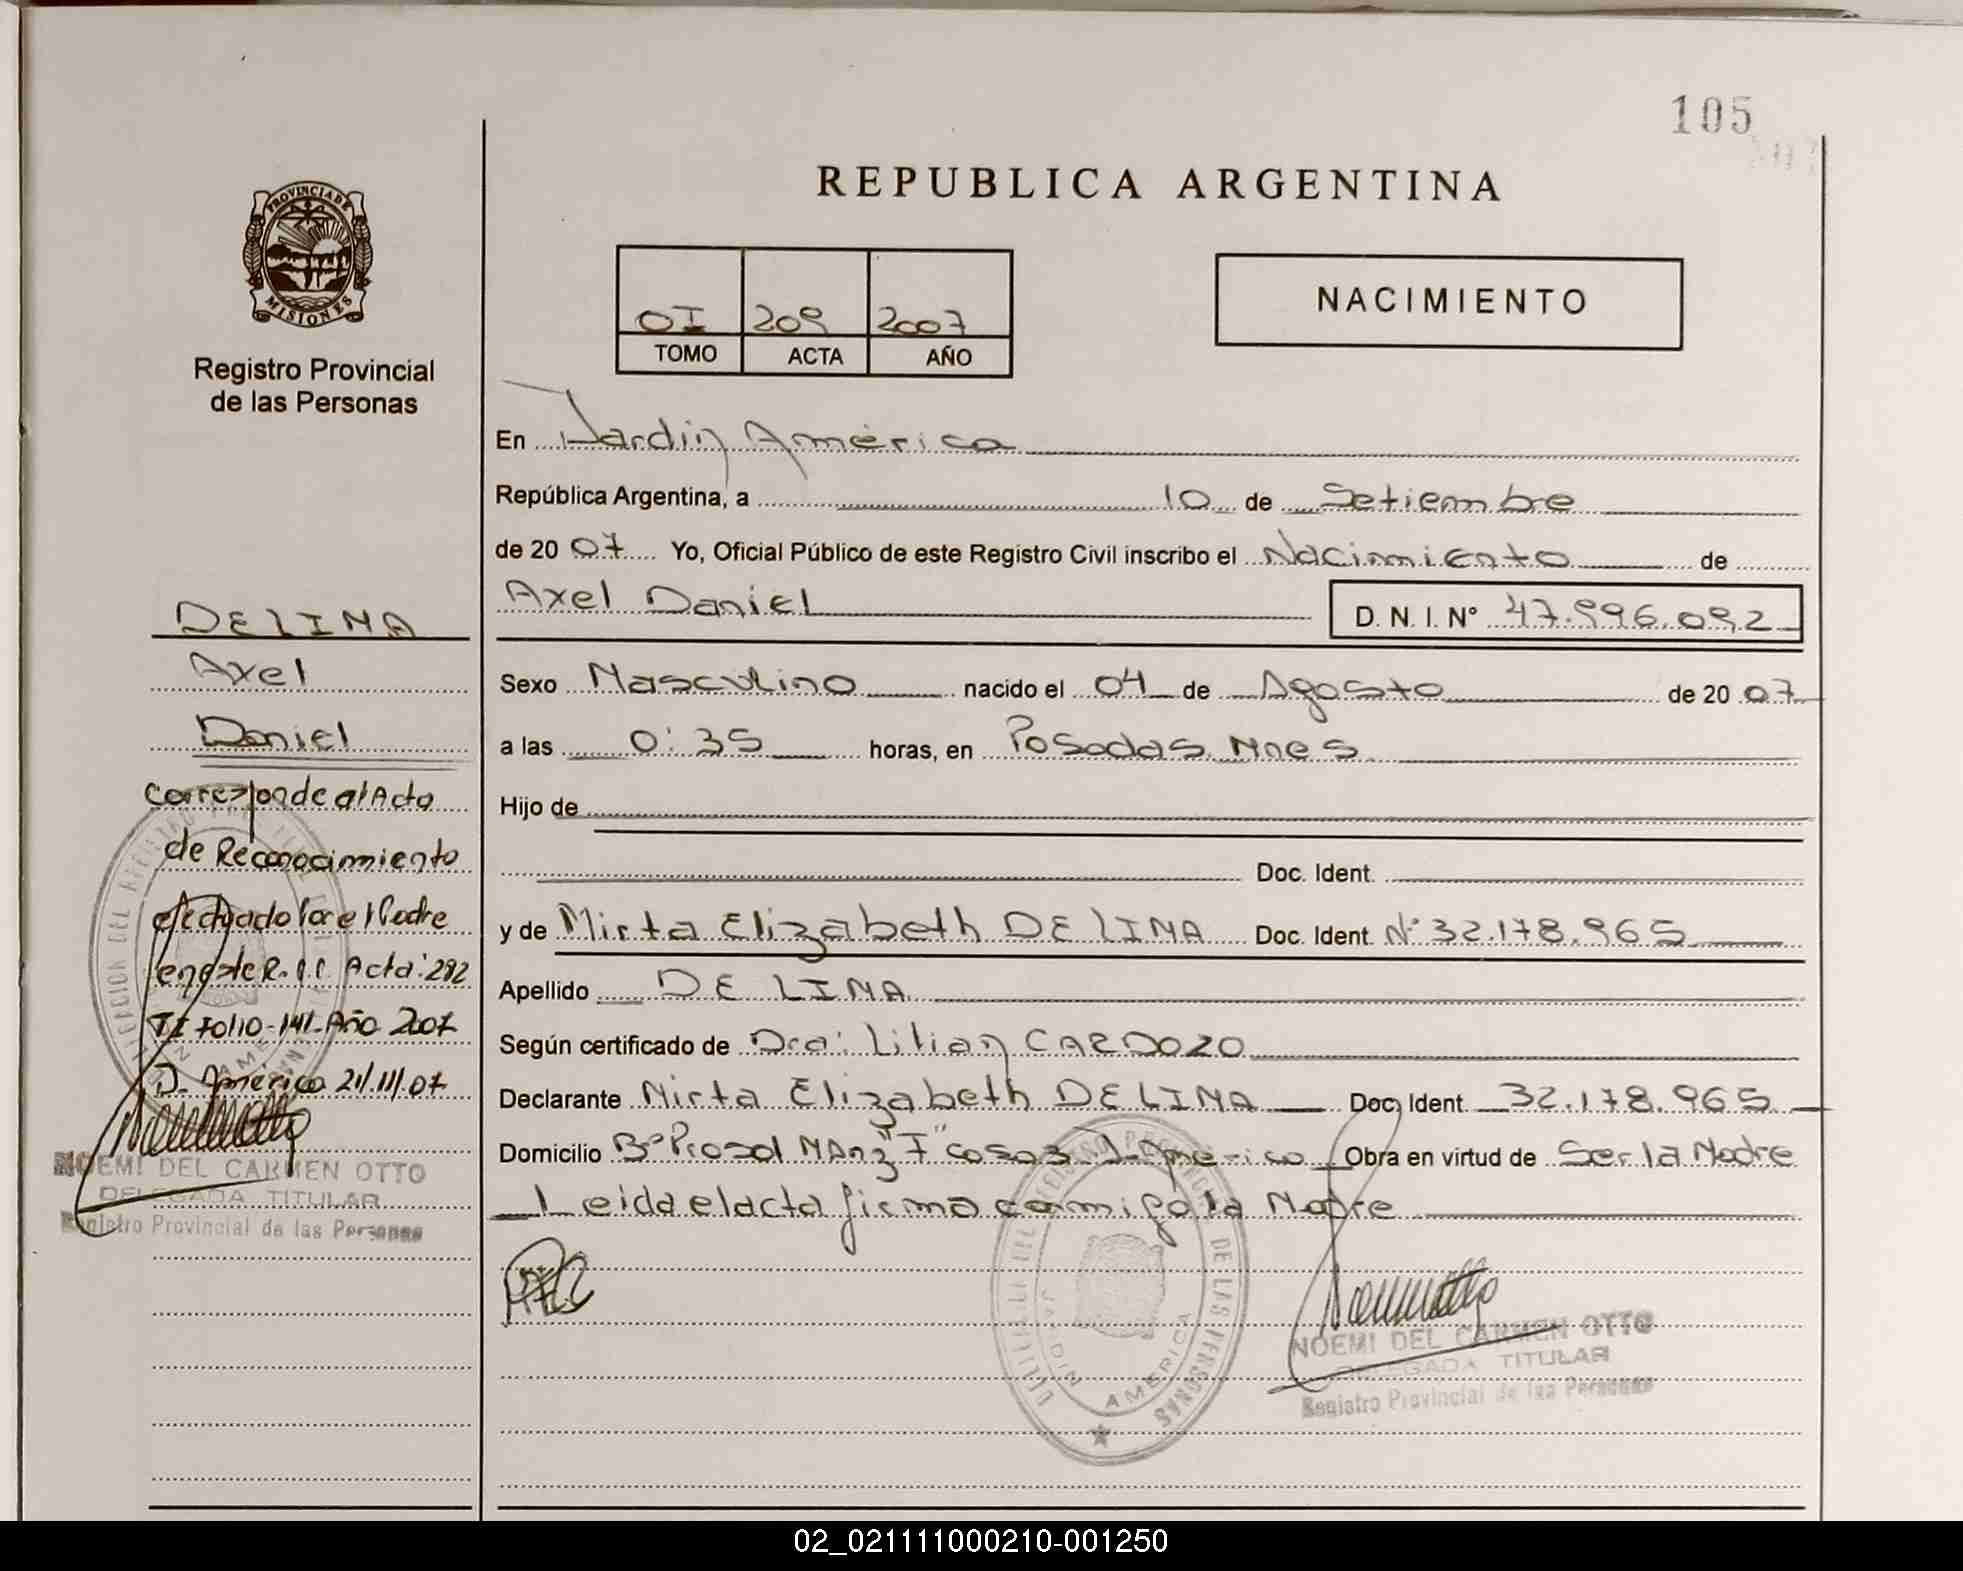 105
REPUBLICA ARGENTINA
PROVINCIA DE
MISIONES
Registro Provincial
de las Personas
OI 209 2007
TOMO ACTA AÑO
NACIMIENTO
En Jardin América
República Argentina, a 10 de Setiembre
de 2007 Yo, Oficial Público de este Registro Civil inscribo el Nacimiento de
Axel Daniel D. N. I. N° 47.996.092
Sexo Masculino nacido el 04 de Agosto de 2007
a las 0:35 horas, en Posadas Mnes
Hijo de
Doc. Ident.
y de Mirta Elizabeth DE LIMA Doc. Ident. N° 32.178.965
Apellido DE LIMA
Según certificado de Dra: Lilian CARDOZO
Declarante Mirta Elizabeth DE LIMA Doc. Ident. 32.178.965
Domicilio B° Prosol Manz "F" casa 3 J. América Obra en virtud de Ser la Madre
Leida el acta firma conmigo la Madre
DE LIMA
Axel
Daniel
Corresponde al Acta
de Reconocimiento
efectuado por el Padre
en este R. Acta: 282
TI Folio-141-Año 2007
J. América 21/11/07
NOEMI DEL CARMEN OTTO
DELEGADA TITULAR
Registro Provincial de las Personas
DE LAS PERSONAS
JARDIN AMERICA
NOEMI DEL CARMEN OTTO
DELEGADA TITULAR
Registro Provincial de las Personas
02_021111000210-001250